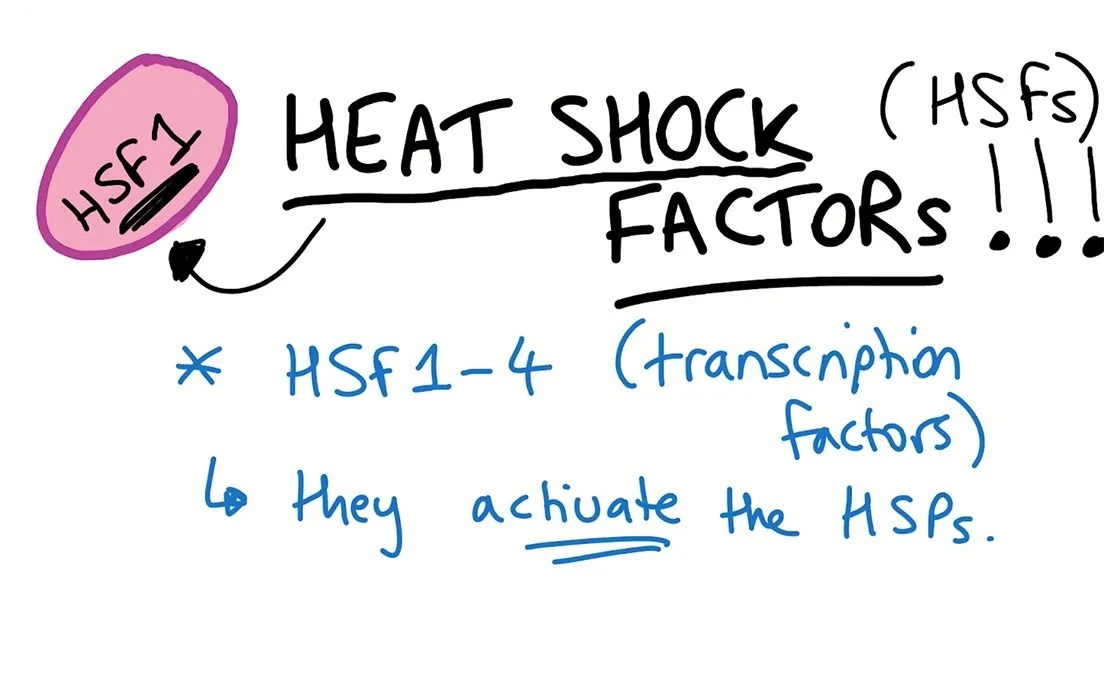 HSF1
HEAT SHOCK (HSFs)
FACTORS !!!
* HSF1-4 (transcription
factors)
↳ they activate the HSPs.